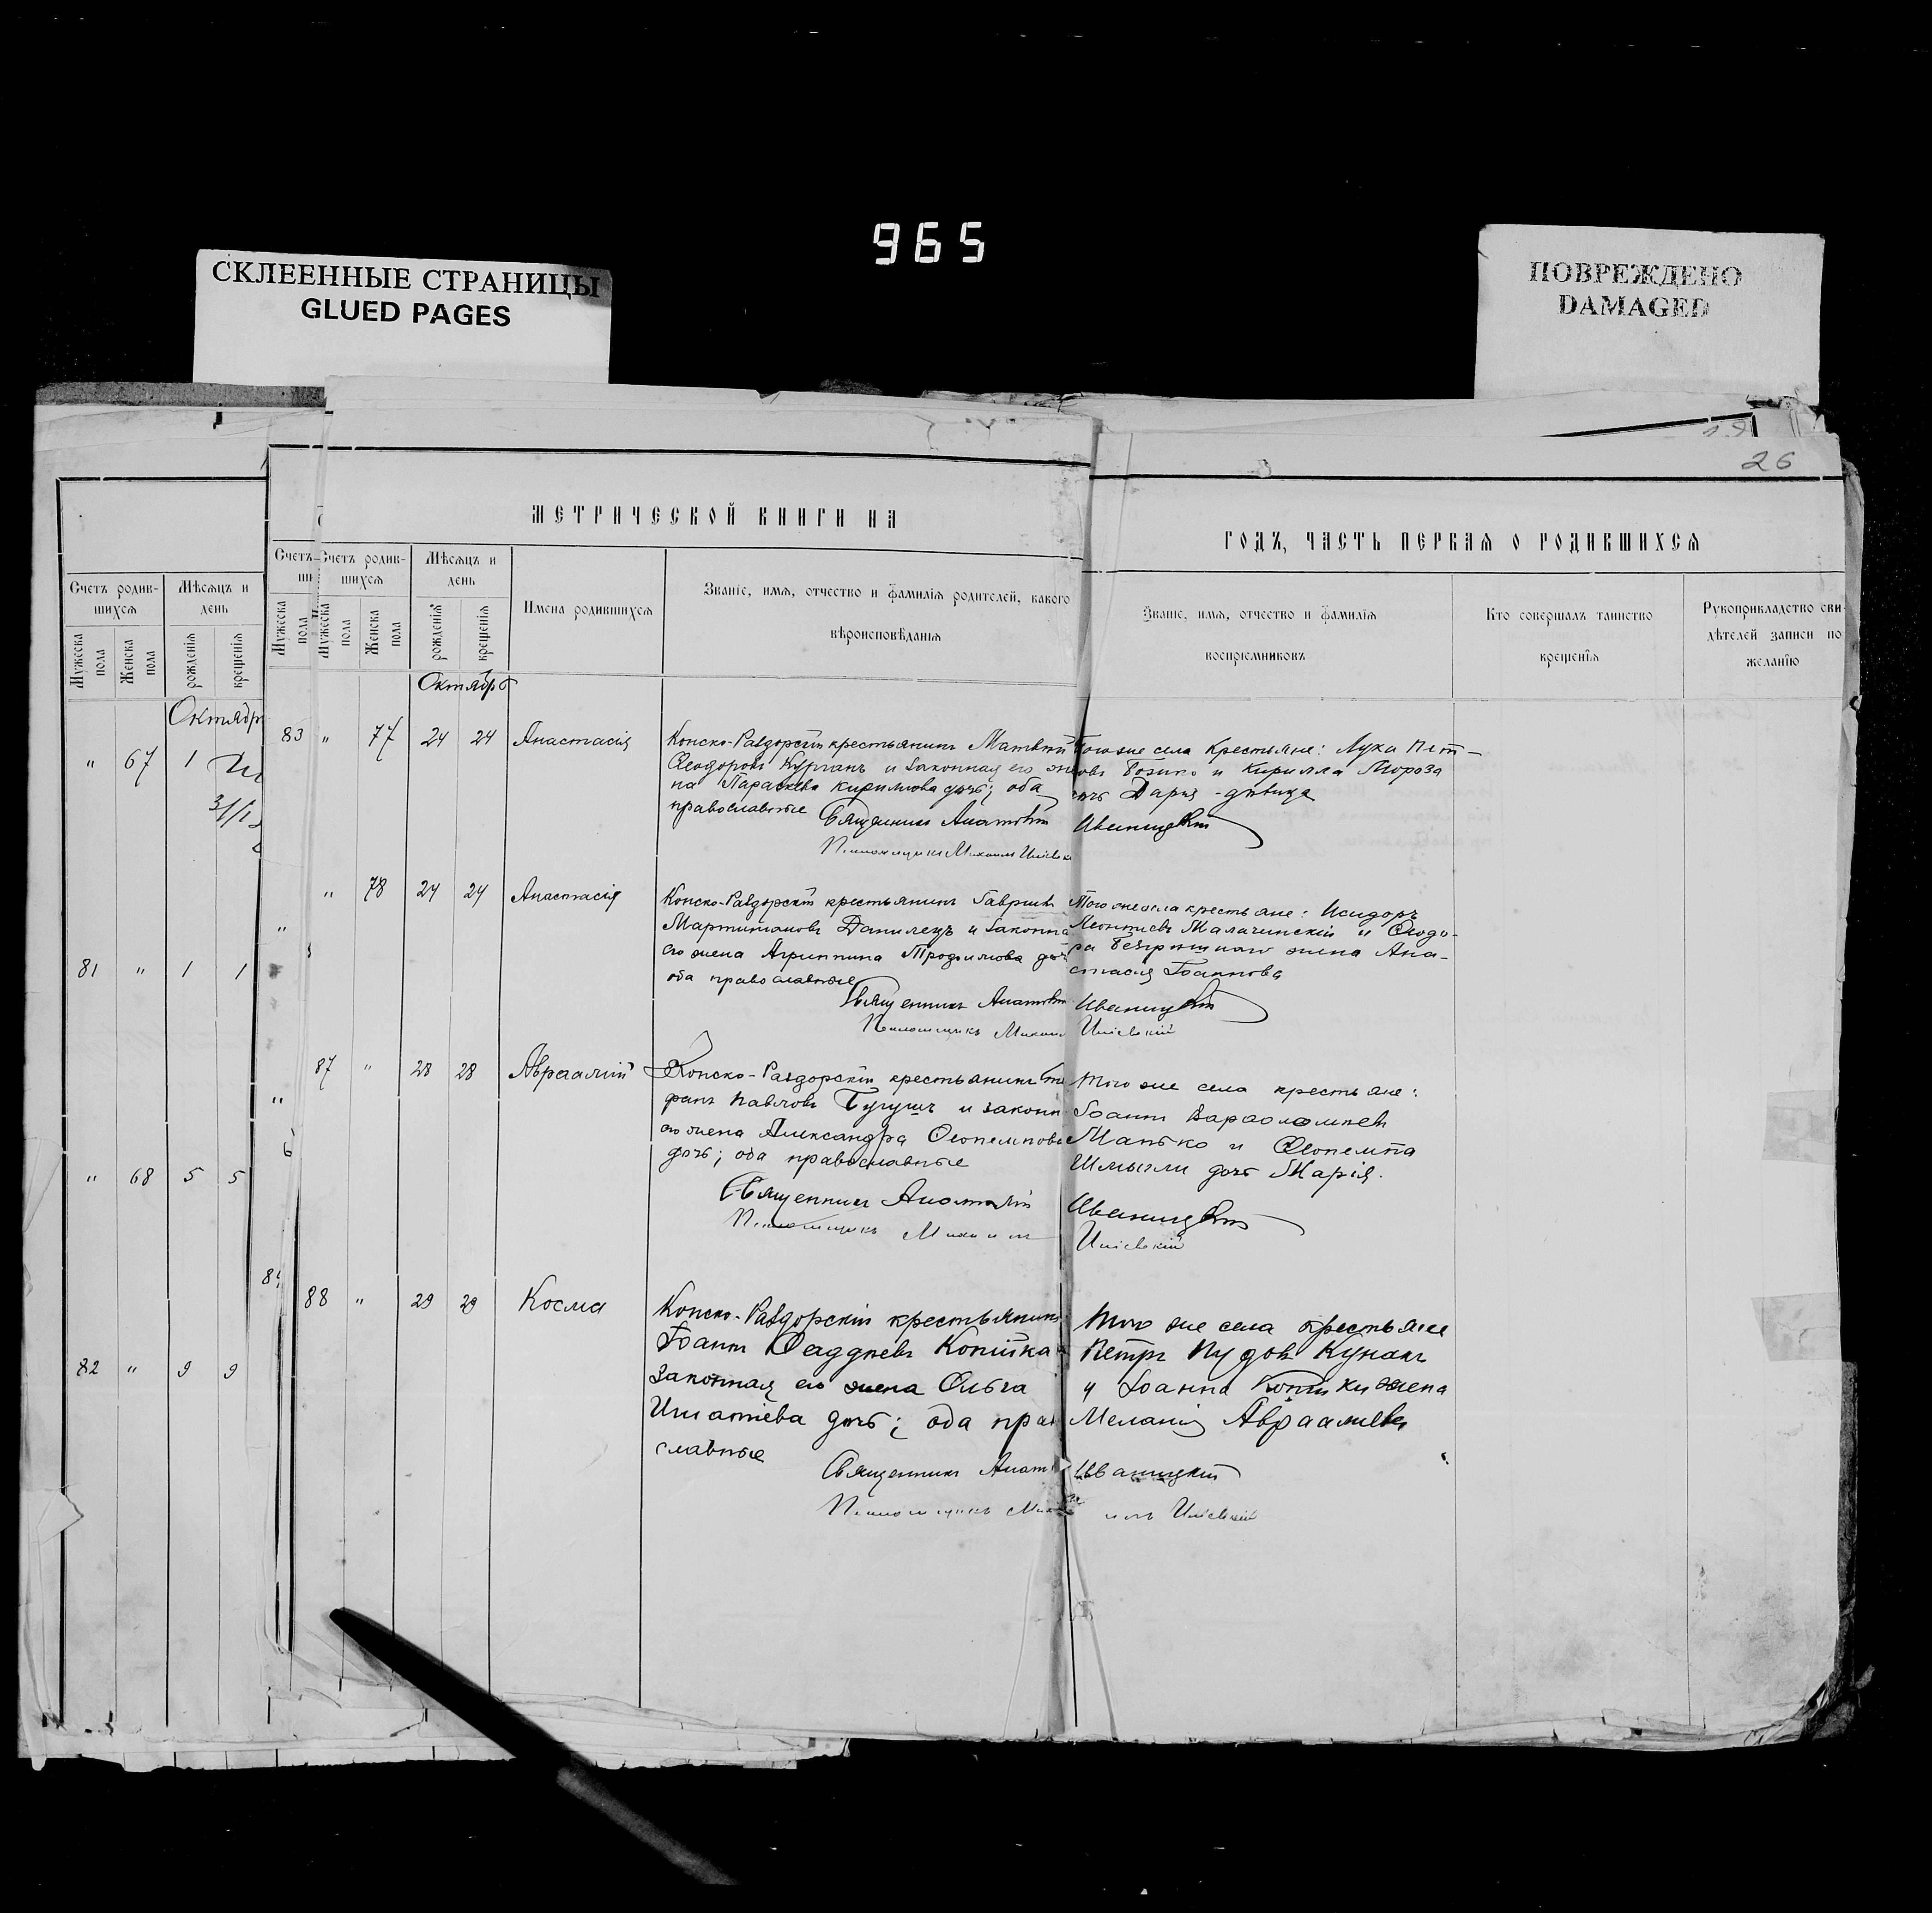 965
СКЛЕЕННЫЕ СТРАНИЦЫ
GLUED PAGES
ПОВРЕЖДЕНО
DAMAGED
26
МЕТРИЧЕСКОЙ КНИГИ НА
ГОДЪ, ЧАСТЬ ПЕРВАЯ О РОДИВШИХСЯ
Счетъ родив-
шихся
Мѣсяцъ и
день
Мужеска
пола
Женска
пола
рожденія
крещенія
Счетъ
Мужеска
пола
Счетъ родив-
шихся
Мужеска
пола
Женска
пола
Мѣсяцъ и
день
рожденія
крещенія
Имена родившихся
Званіе, имя, отчество и фамилія родителей, какого
вѣроисповѣданія
Званіе, имя, отчество и фамилія
воспріемниковъ
Кто совершалъ таинство
крещенія
Рукоприкладство сви-
дѣтелей записи по
желанію
Октябр
" 67 1
81 " 1 1
" 68 5 5
82 " 9 9
83
Октябрь
" 77 24 24 Анастасія
Конско-Раздорскій крестьянинъ Матвѣй
Ѳеодоровъ Курганъ и законная его же
на Параскева Кириллова дочь; оба
православные
Священникъ Анатолій Иваницкій
Псаломщикъ Михаилъ
Того же села крестьяне: Лука Пет-
ровъ Бозико и Кирилла Мороза
дочь Дарія - дѣвица
" 78 24 24 Анастасія
Конско-Раздорскій крестьянинъ Гавріилъ
Мартиніановъ Данилецъ и законна
его жена Агриппина Трофимова доч
оба православные
Священникъ Анатолій Иваницкій
Псаломщикъ Михаил
Того же села крестьяне: Исидоръ
Леонтіевъ Малачинскій и Ѳеодо-
ра жена Ана-
стасія Іоаннова
87 " 28 28 Авраамій
Конско-Раздорскій крестьянинъ Сте
фанъ Павловъ Бугушъ и законн
его жена Александра Ѳеопемптова
дочь; оба православные
Священникъ Анатолій Иваницкій
Псаломщикъ Михаилъ
Того же села крестьяне:
Іоаннъ Варѳоломеевъ
Манько и Ѳеопемпта
Шмыгли дочь Марія.
88 " 29 29 Косма
Конско-Раздорскій крестьянинъ
Іоаннъ Ѳаддеевъ Копійка
законная его жена Ольга
Игнатіева дочь; оба прав
славные
Священникъ Анат Иваницкій
Псаломщикъ Миха илъ
Того же села крестьяне
Петръ Пудовъ Кунакъ
и Іоанна Копійки жена
Меланія Авраамиева